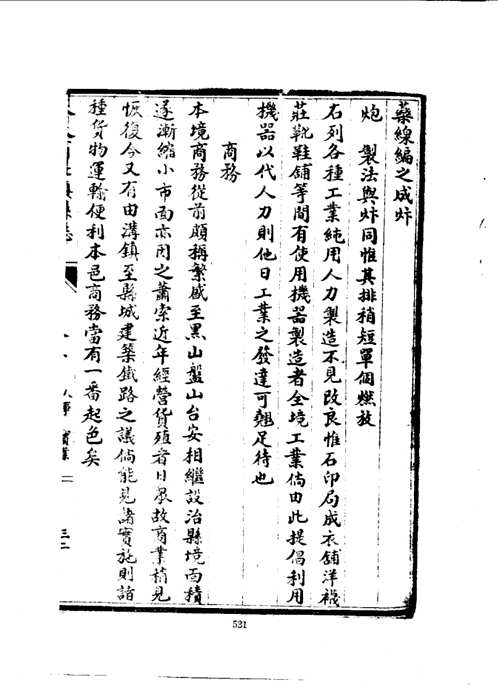 藥線編之成炸
炮　製法與炸同惟其排稍短單個燃放
右列各種工業純用人力製造不見改良惟石印局成衣舖洋襪
莊靴鞋舖等間有使用機器製造者全境工業倘由此提倡利用
機器以代人力則他日工業之發達可翹足待也
商務
本境商務從前頗稱繁盛至黑山盤山台安相繼設治縣境面積
遂漸縮小市面亦因之蕭索近年經營貨殖者日衆故商業稍見
恢復今又有由溝鎮至縣城建築鐵路之議倘能見諸實施則諸
種貨物運輸便利本邑商務當有一番起色矣
縣志
實業
三二
531